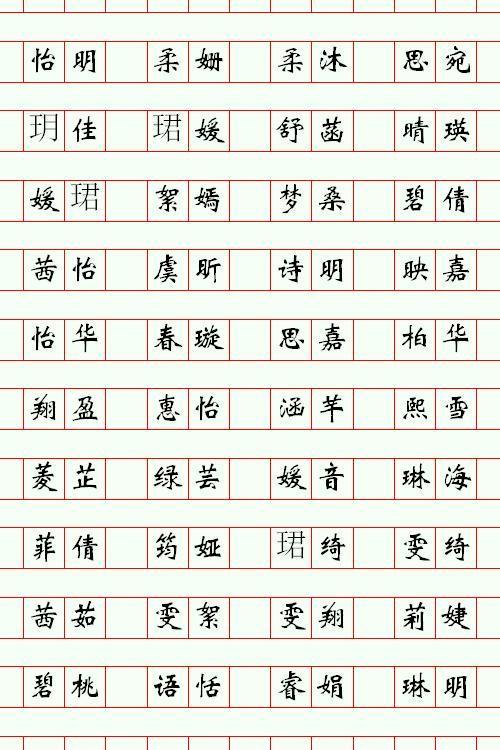 怡明 柔姗 柔沐 思宛
玥佳 珺媛 舒菡 晴瑛
媛珺 絮嫣 梦桑 碧倩
茜怡 虞昕 诗明 映嘉
怡华 春璇 思嘉 柏华
翔盈 惠怡 涵芊 熙雪
菱芷 绿芸 媛音 琳海
菲倩 筠娅 珺绮 雯绮
茜茹 雯絮 雯翔 莉婕
碧桃 语恬 睿娟 琳明